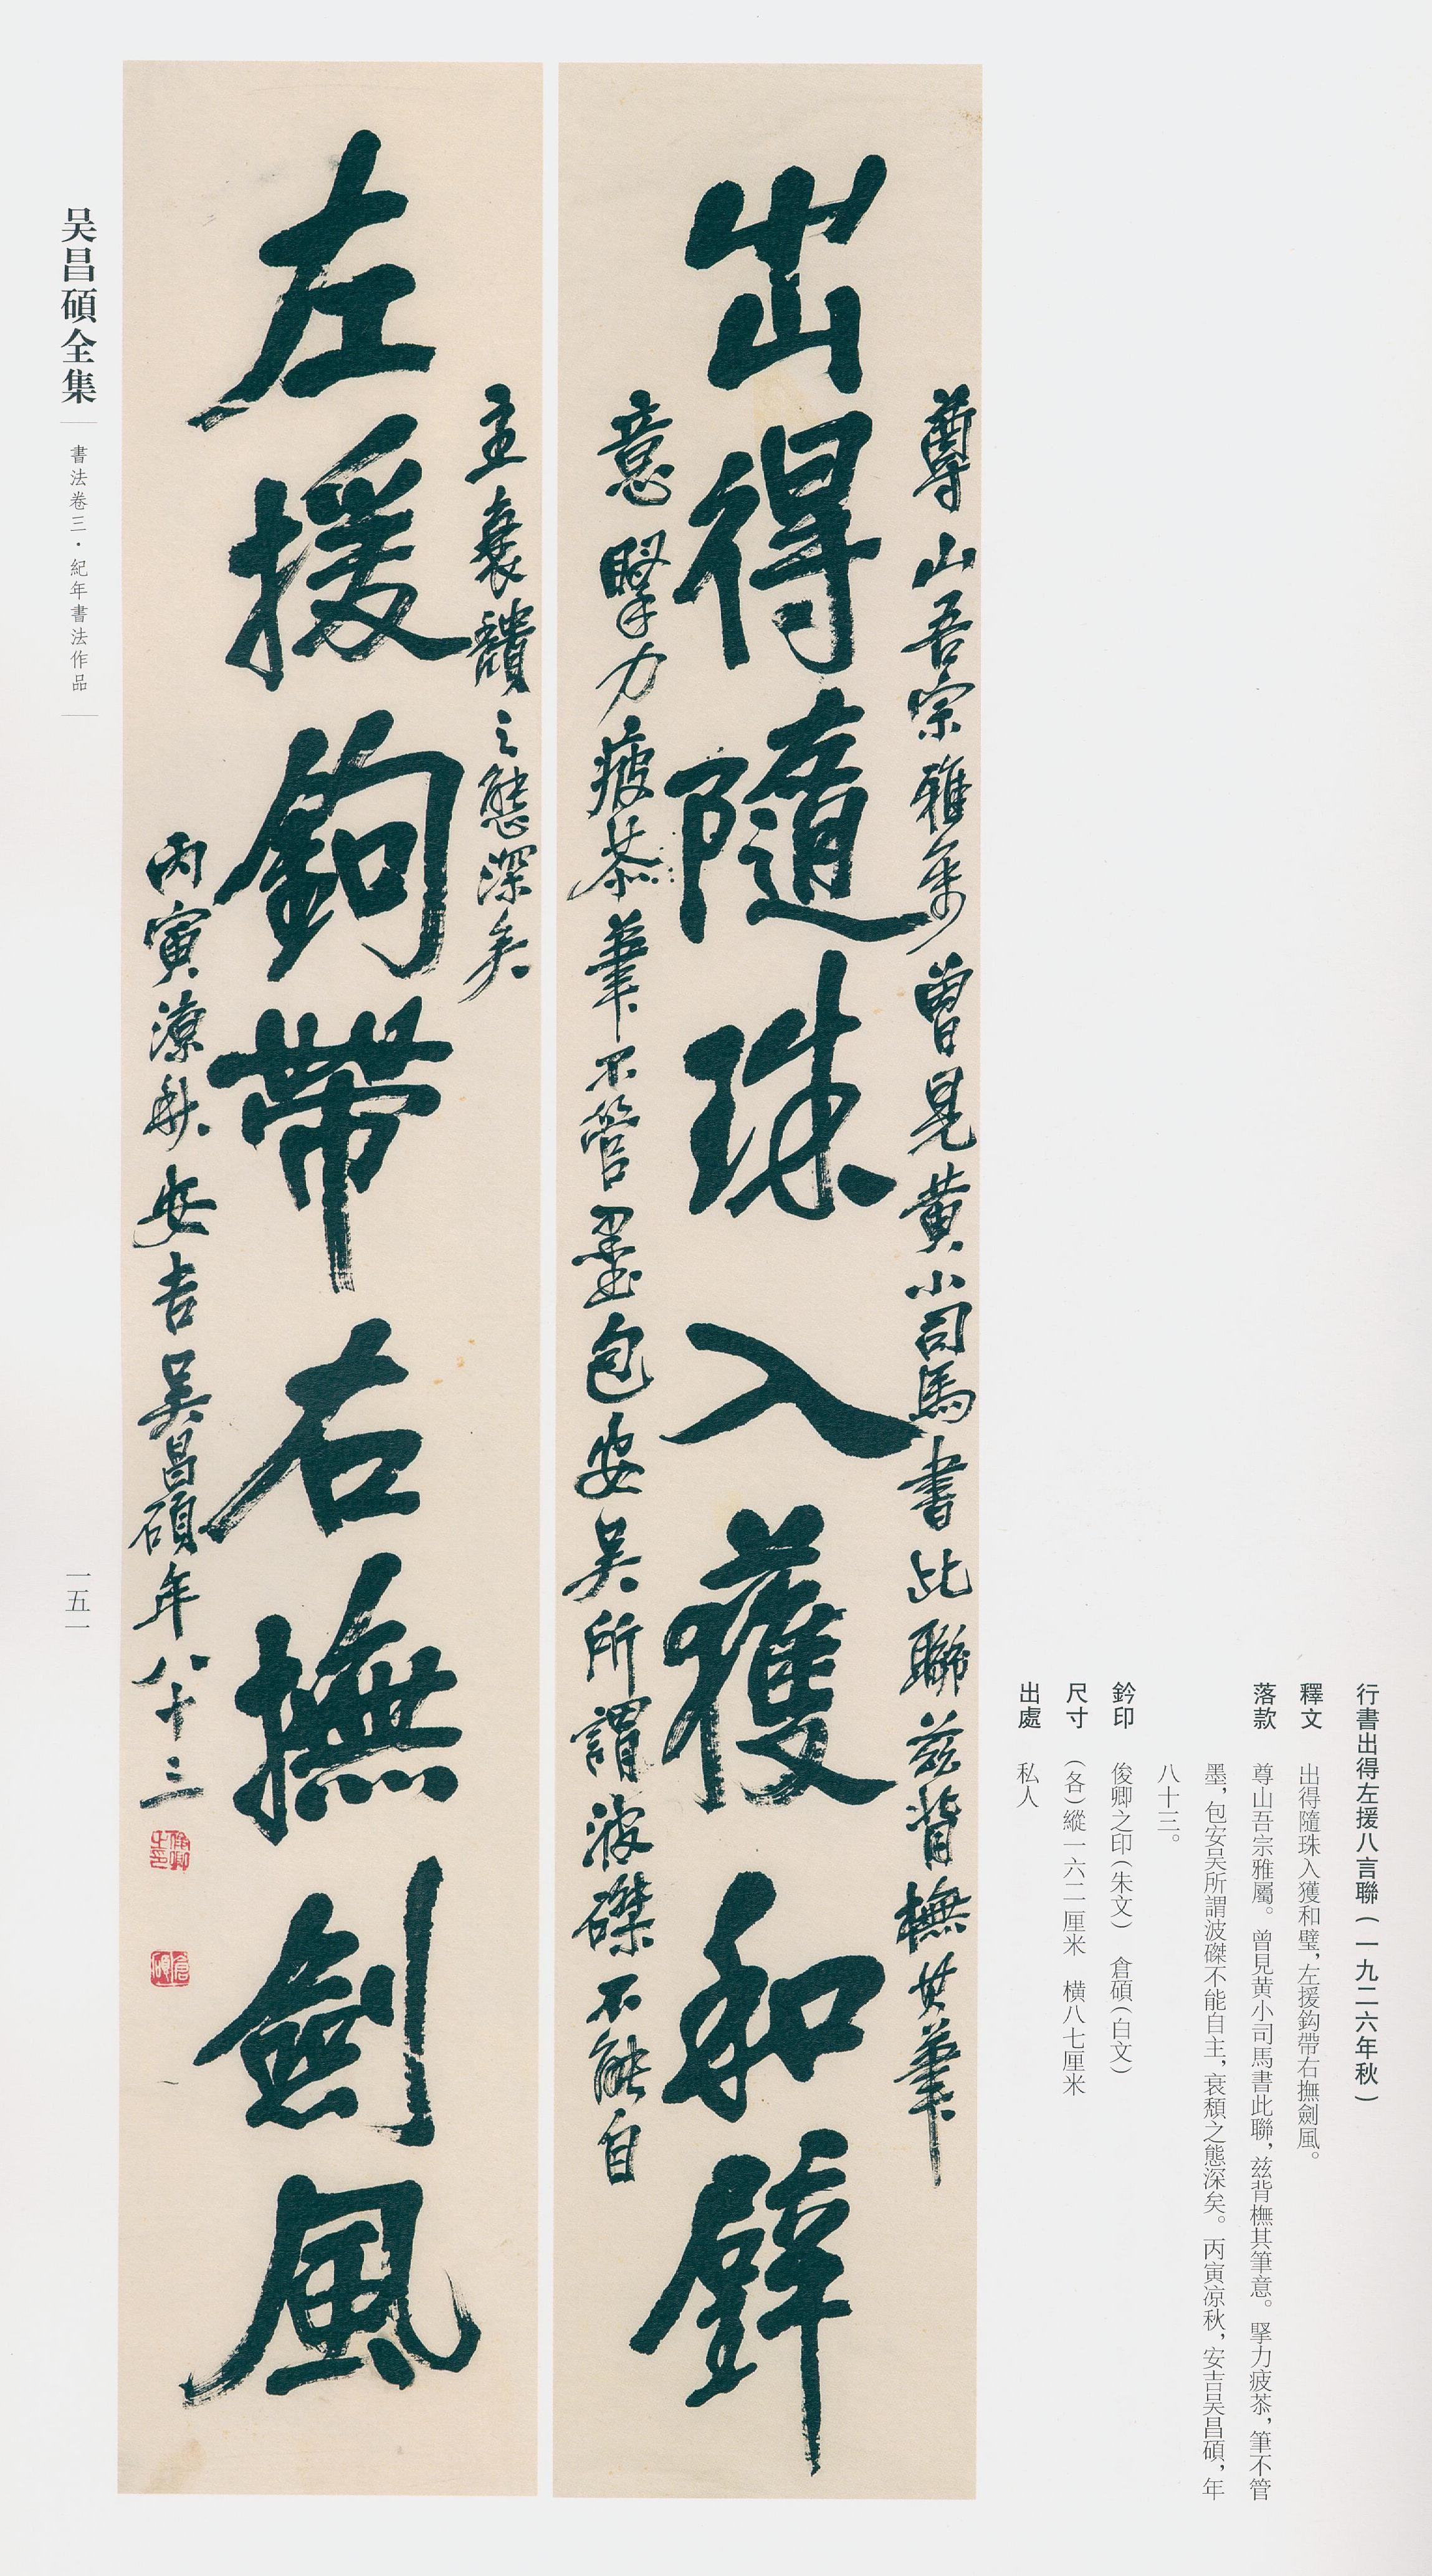 行書出得左援八言聯(一九二六年秋)
釋文 出得隨珠入獲和璧,左援鈎帶右撫劍風。
落款 尊山吾宗雅屬。曾見黄小司馬書此聯,兹背橅其筆意。掔力疲苶,筆不管
墨,包安吴所謂波磔不能自主,衰頹之態深矣。丙寅凉秋,安吉吴昌碩,年
八十三。
鈐印 俊卿之印(朱文) 倉碩(白文)
尺寸 (各)縱一六二厘米 横八七厘米
出處 私人
尊山吾宗雅屬曾見黄小司馬書此聯兹背橅其筆
出得隨珠入獲和璧
意掔力疲苶筆不管墨包安吴所謂波磔不能自
主衰頹之態深矣
左援鈎帶右撫劍風
丙寅凉秋安吉吴昌碩年八十三
俊卿之印
倉碩
吴昌碩全集
書法卷三·紀年書法作品
一五一